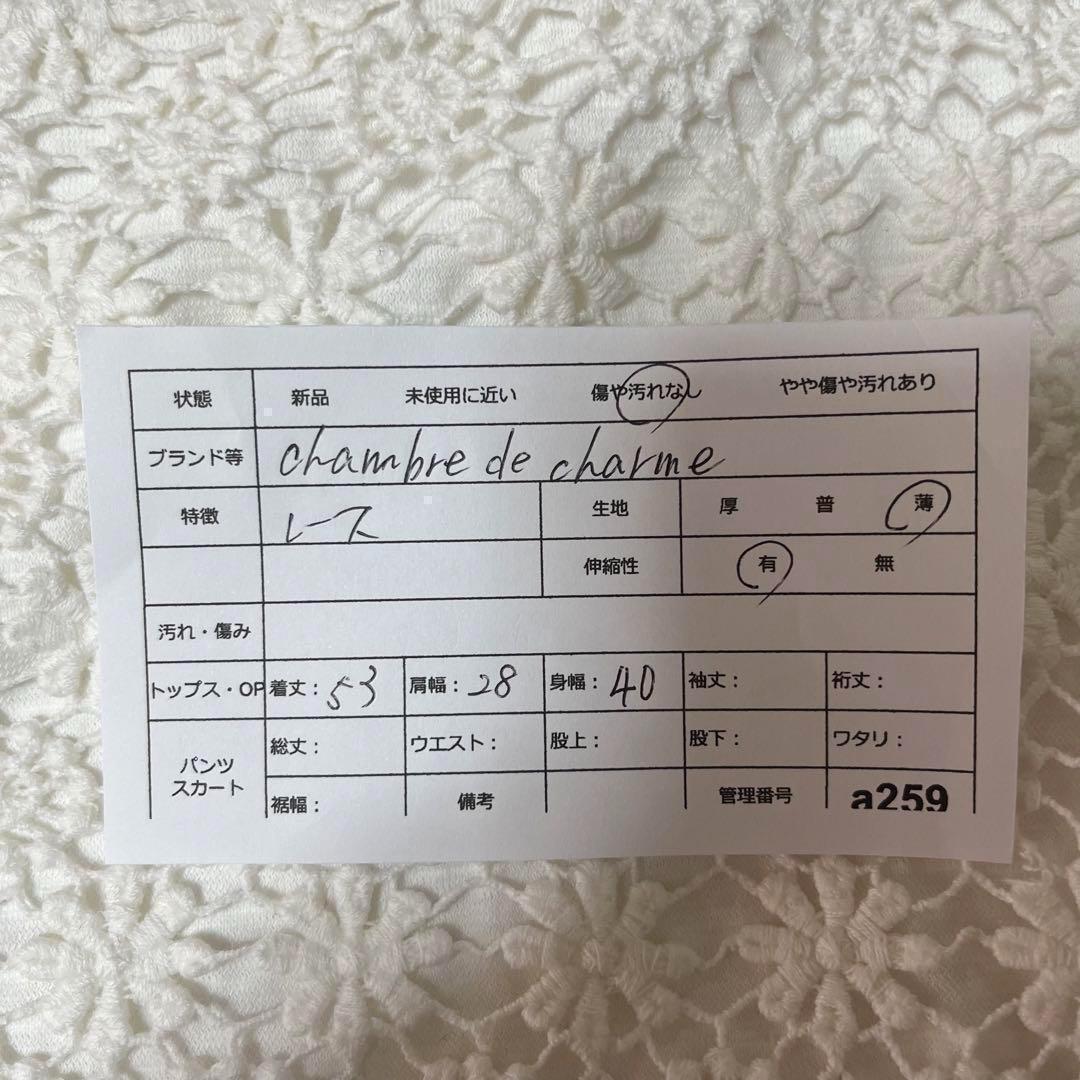 状態 新品 未使用に近い 傷や汚れなし やや傷や汚れあり
ブランド等 chambre de charme
特徴 レース 生地 厚 普 薄
伸縮性 有 無
汚れ・傷み
トップス・OP 着丈：53 肩幅：28 身幅：40 袖丈： 裄丈：
パンツ スカート 総丈： ウエスト： 股上： 股下： ワタリ：
裾幅： 備考 管理番号 a259